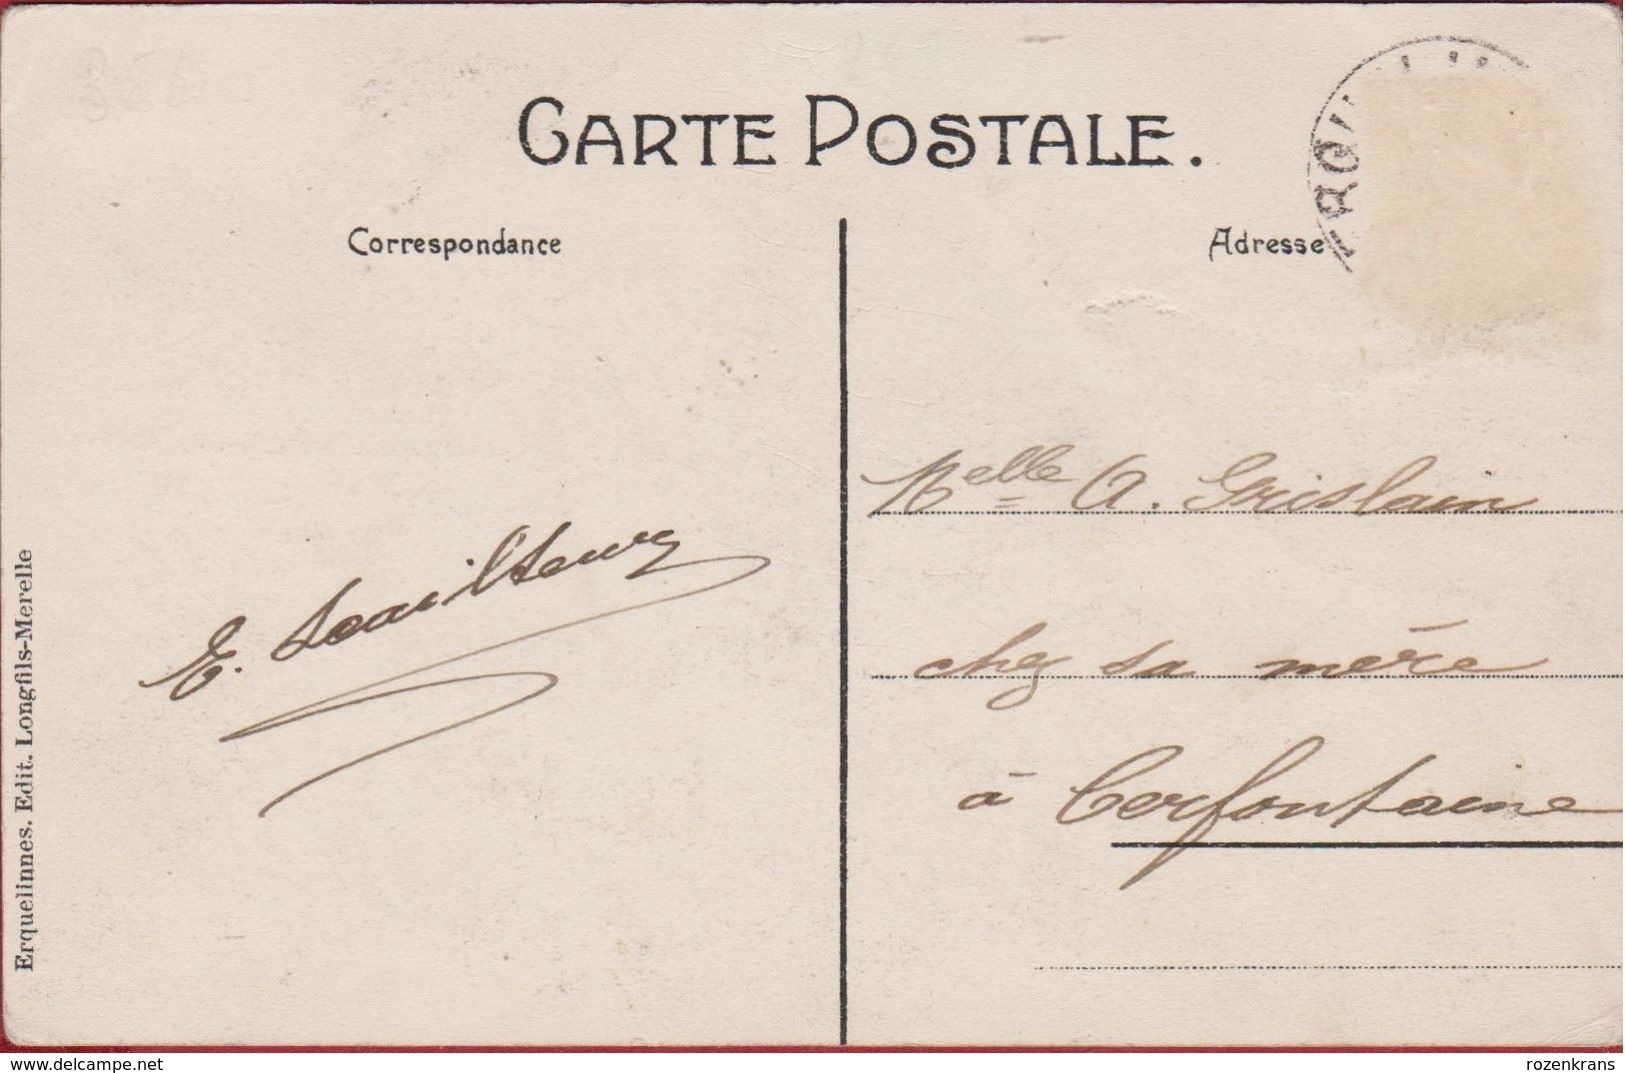 CARTE POSTALE.
Correspondance
Adresse
Melle A. Grislain
chez sa mère
à Cerfontaine
E.
Erquelinnes. Edit. Longfils-Merelle
www.delcampe.net
rozenkrans